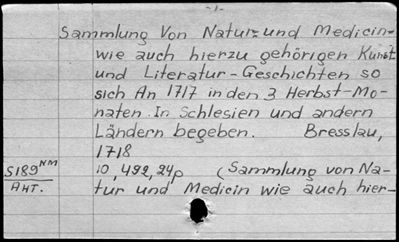 -1-
Sammlung Von Natur- und Medicin-
wie auch hierzu gehörigen Kunst
und Literatur-Geschichten so
sich An 1717 in den 3 Herbst-Mo-
naten In Schlesien und andern
Ländern begeben. Bresslau,
1718
S189NM 10, 492, 24p (Sammlung von Na-
Aнт. tur und Medicin wie auch hier-